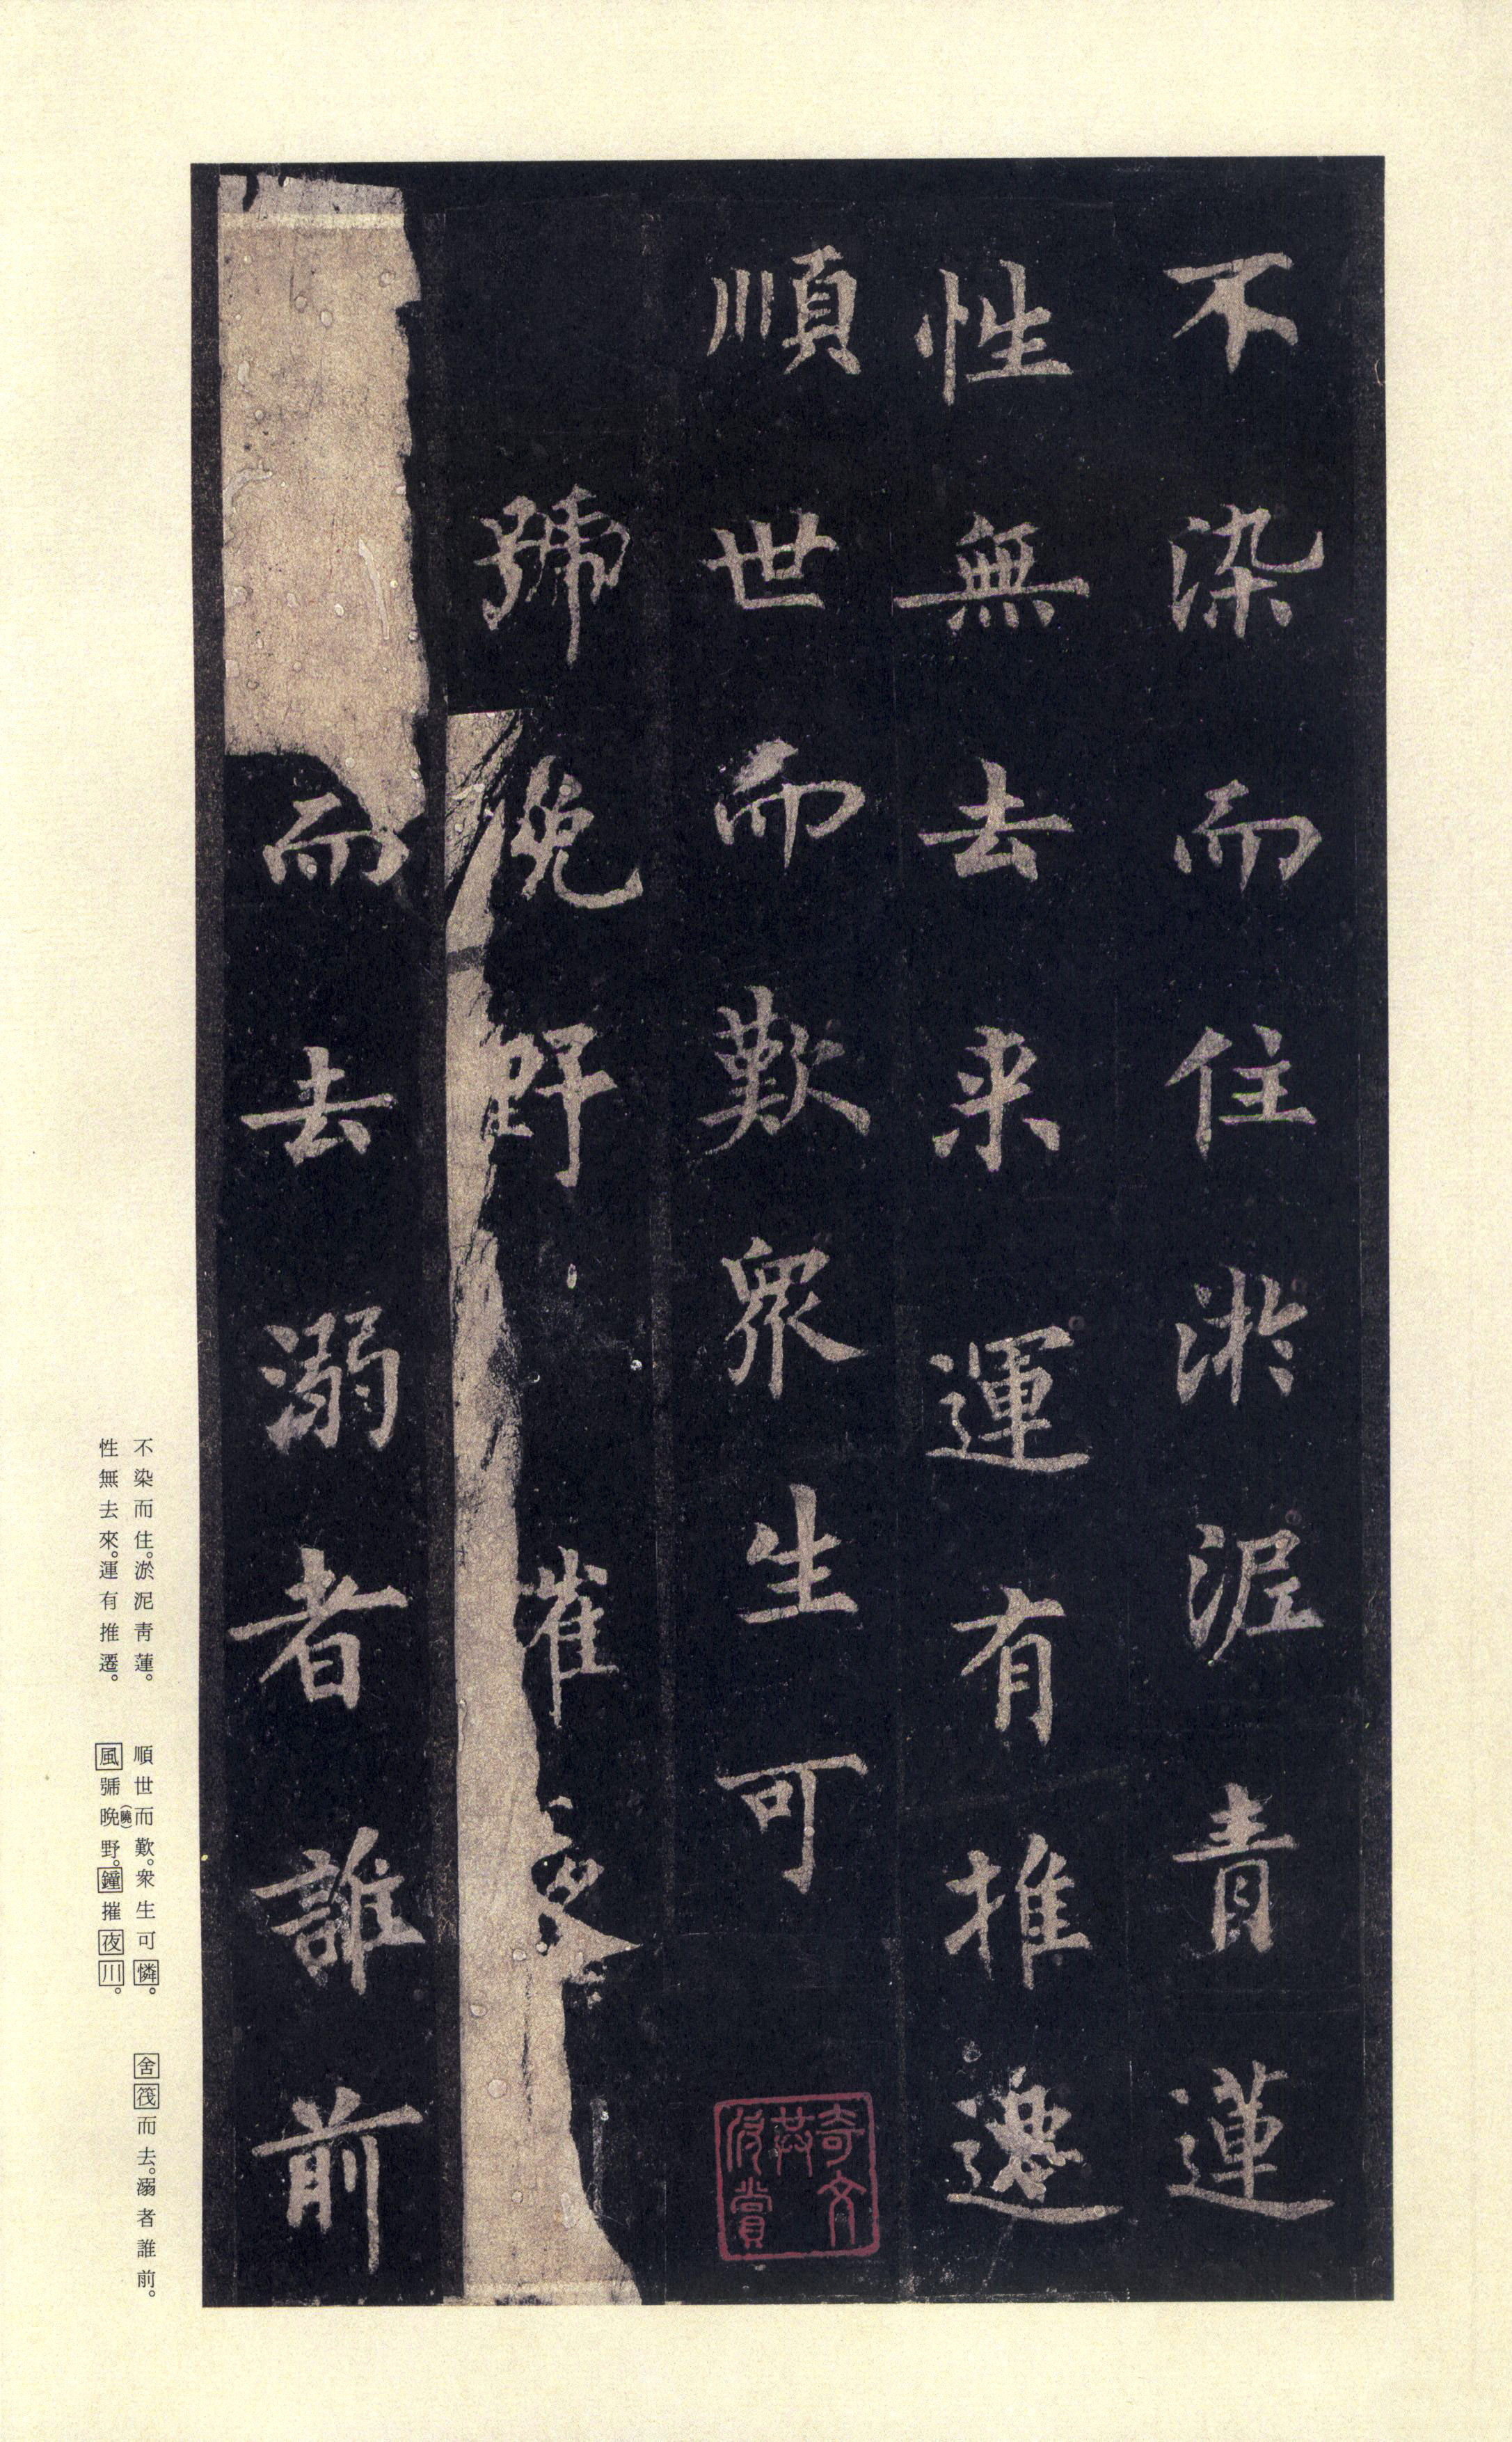 不染而住淤泥青蓮
性無去来運有推遷
順世而歎衆生可
號晚野摧夜
而去溺者誰前
奇文
共
欣賞
不染而住。淤泥青蓮。
性無去來。運有推遷。
順世而歎。衆生可憐。
風號晚(曉)野。鐘摧夜川。
舍筏而去。溺者誰前。